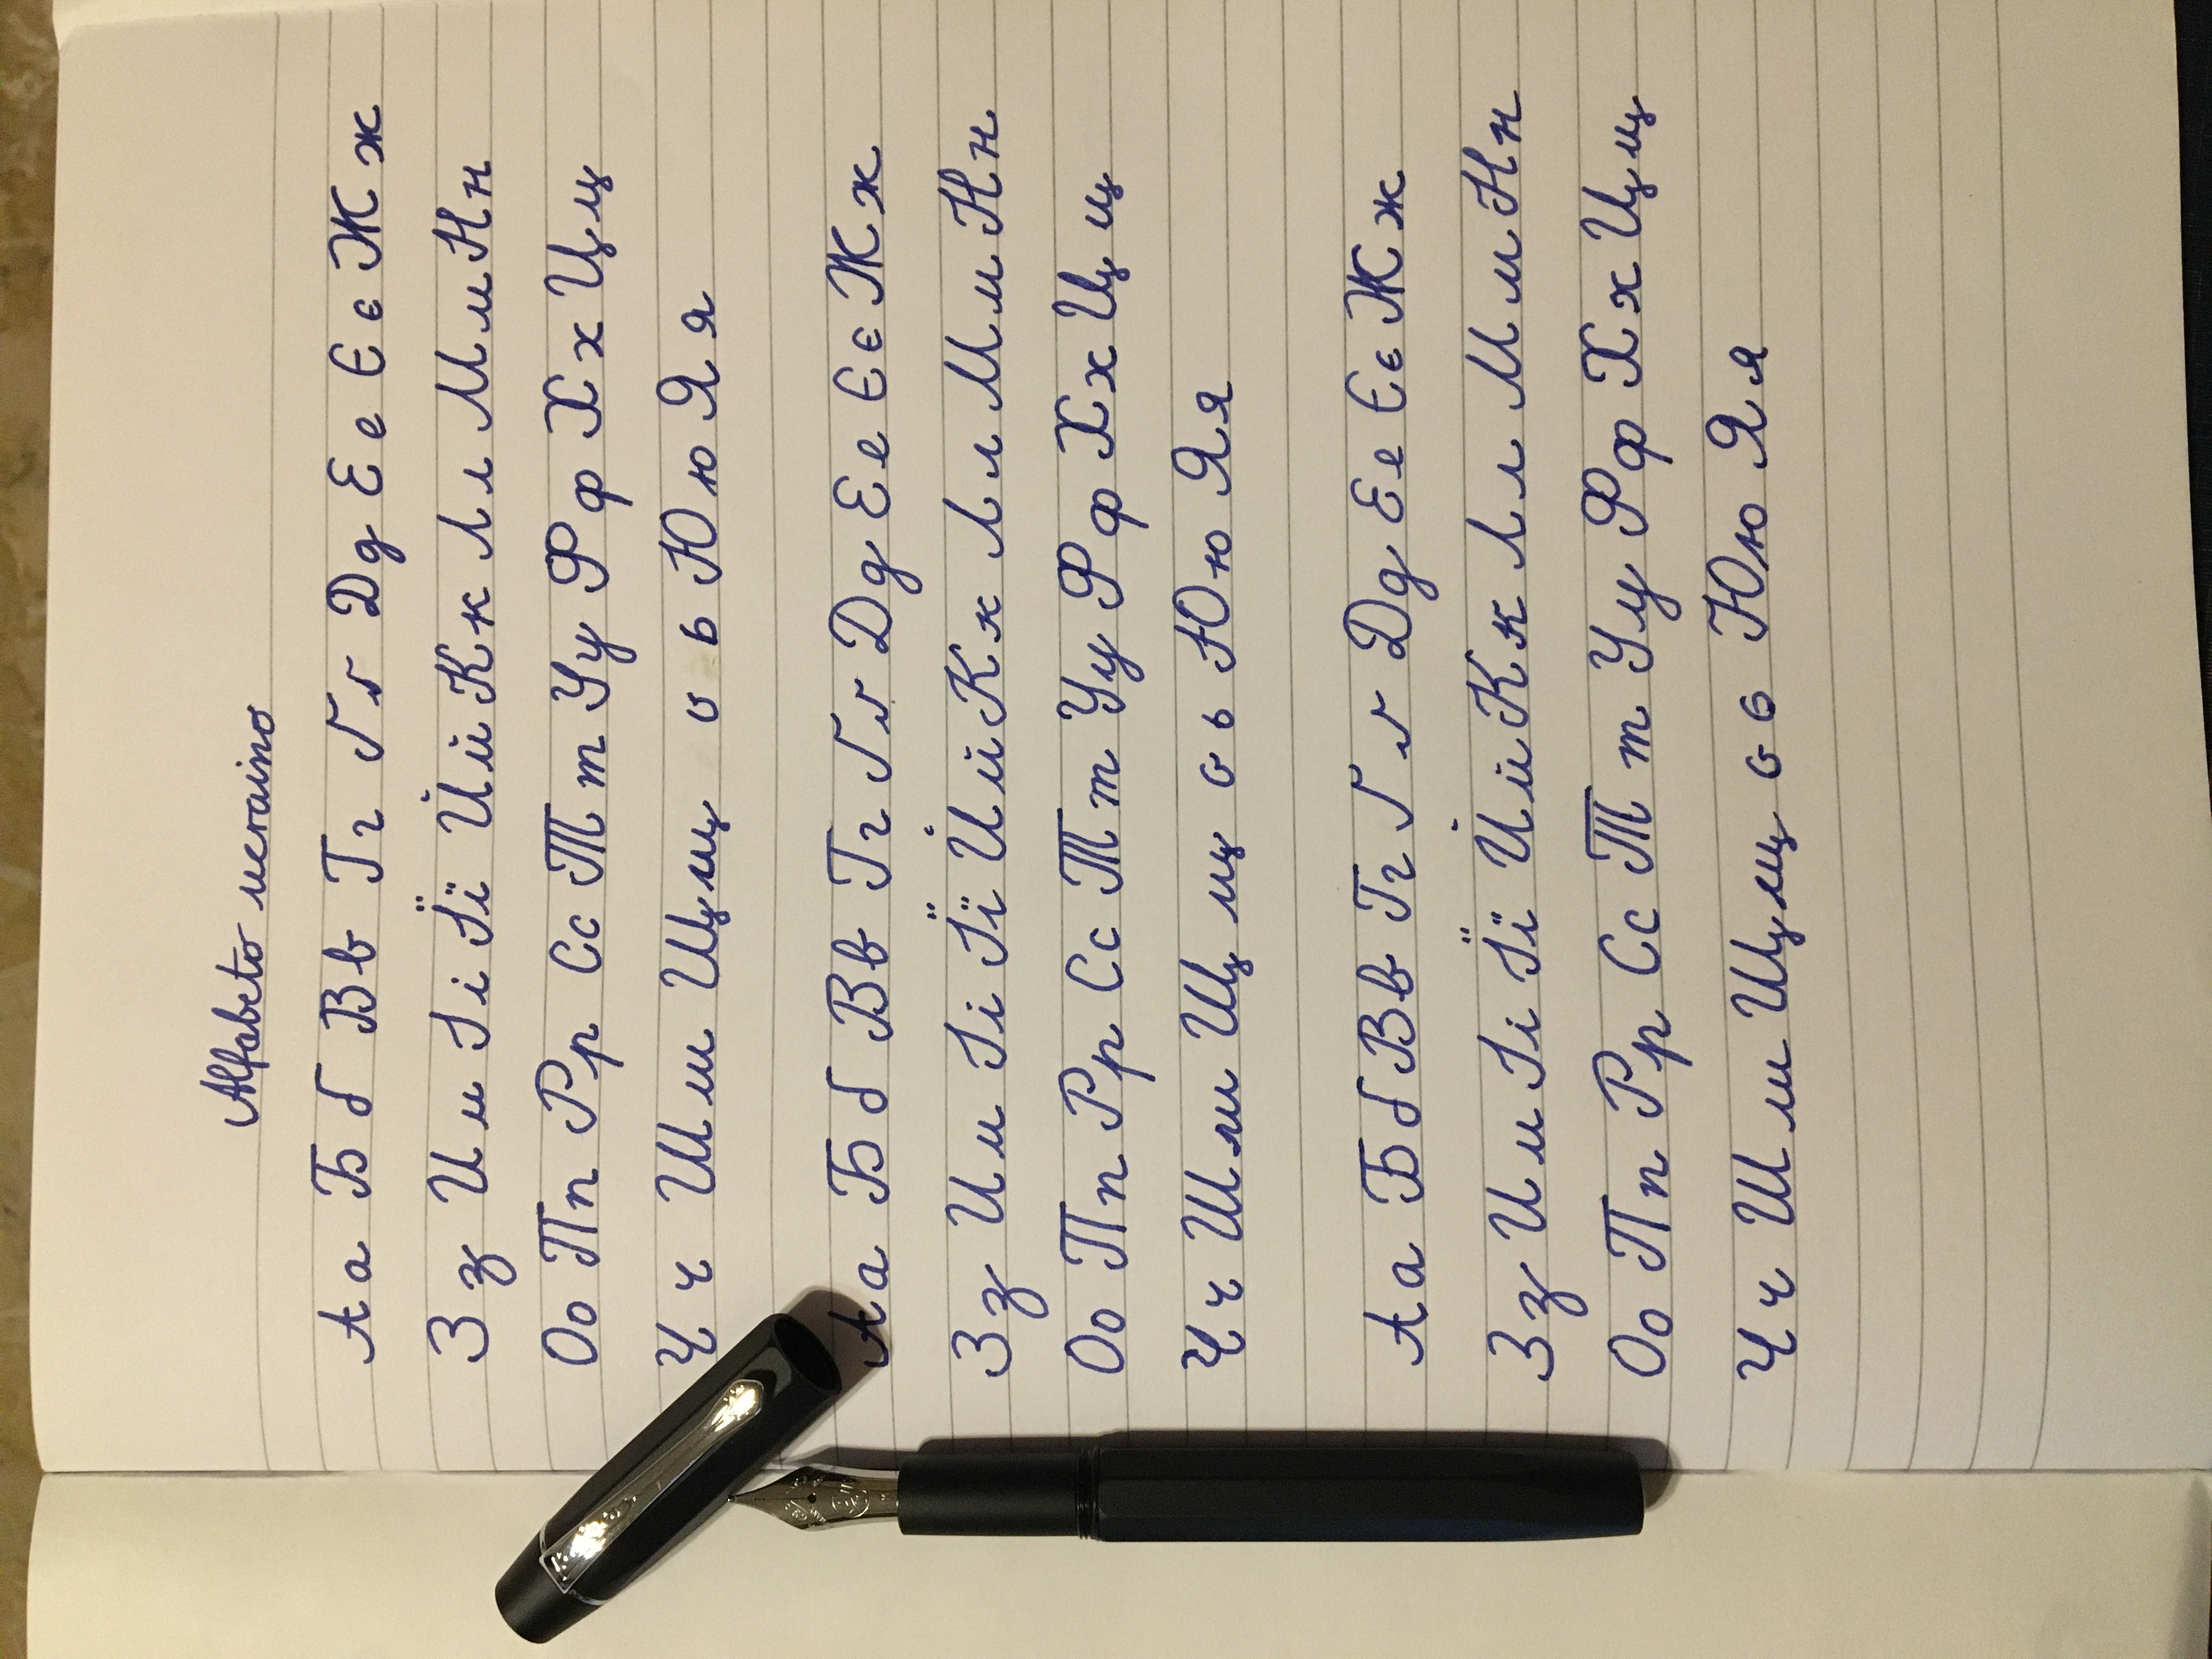 Alfabeto ucraino
Аа Бб Вв Гг Ґґ Дд Ее Єє Жж
Зз Ии Іі Її Йй Кк Лл Мм Нн
Оо Пп Рр Сс Тт Уу Фф Хх Цц
Чч Шш Щщ ь ь Юю Яя
Аа Бб Вв Гг Ґґ Дд Ее Єє Жж
Зз Ии Іі Її Йй Кк Лл Мм Нн
Оо Пп Рр Сс Тт Уу Фф Хх Цц
Чч Шш Щщ ь ь Юю Яя
Аа Бб Вв Гг Ґґ Дд Ее Єє Жж
Зз Ии Іі Її Йй Кк Лл Мм Нн
Оо Пп Рр Сс Тт Уу Фф Хх Цц
Чч Шш Щщ ь ь Юю Яя